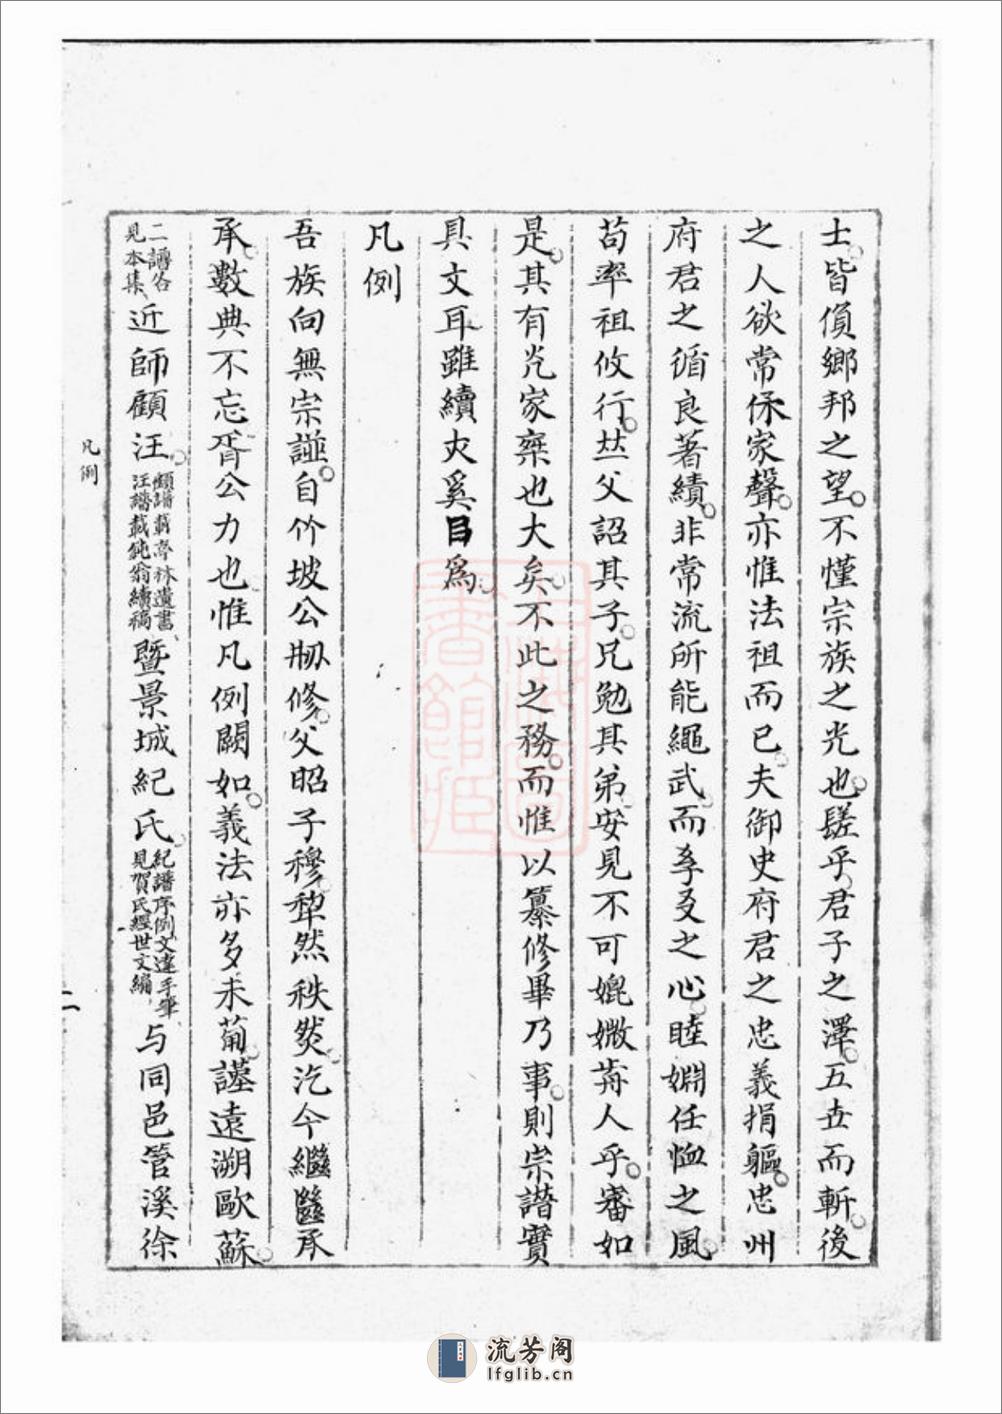 士皆傎鄉邦之望不慬宗族之光也髲乎君子之澤五世而斬後
之人欲常保家聲亦惟法祖而已夫御史府君之忠義捐軀忠州
府君之循良著績非常流所能繩武而孝友之心睦婣任恤之風
苟率祖攸行
父詔其子兄勉其弟安見不可媲媺前人乎審如
是其有光家乘也大矣不此之務而惟以纂修畢乃事則宗譜實
具文耳雖續大奚目為
凡例
吾族向無宗譜自竹坡公刱修父昭子穆犂然秩然汔今繼繼承
承數典不忘胥公力也惟凡例闕如義法亦多未葡謹遠溯歐蘇
二譜各見本集
近師顧汪
顧譜載亭林遺書汪譜載鈍翁續稿
暨景城紀氏
紀譜序例文達手筆見賀氏經世文編
与同邑管溪徐
凡例
二
流芳阁
lfglib.cn